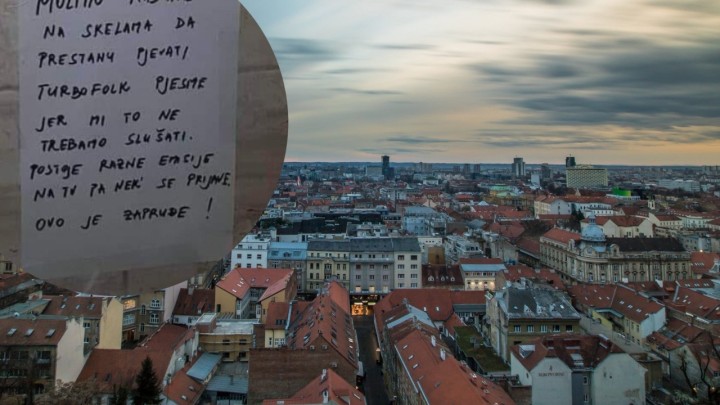 MOLIMO
NA SKELAMA DA
PRESTANU PJEVATI
TURBOFOLK PJESME
JER MI TO NE
TREBAMO SLUŠATI.
POSTOJE RAZNE EMISIJE
NA TV PA NEK' SE PRIJAVE.
OVO JE ZAPRUĐE!